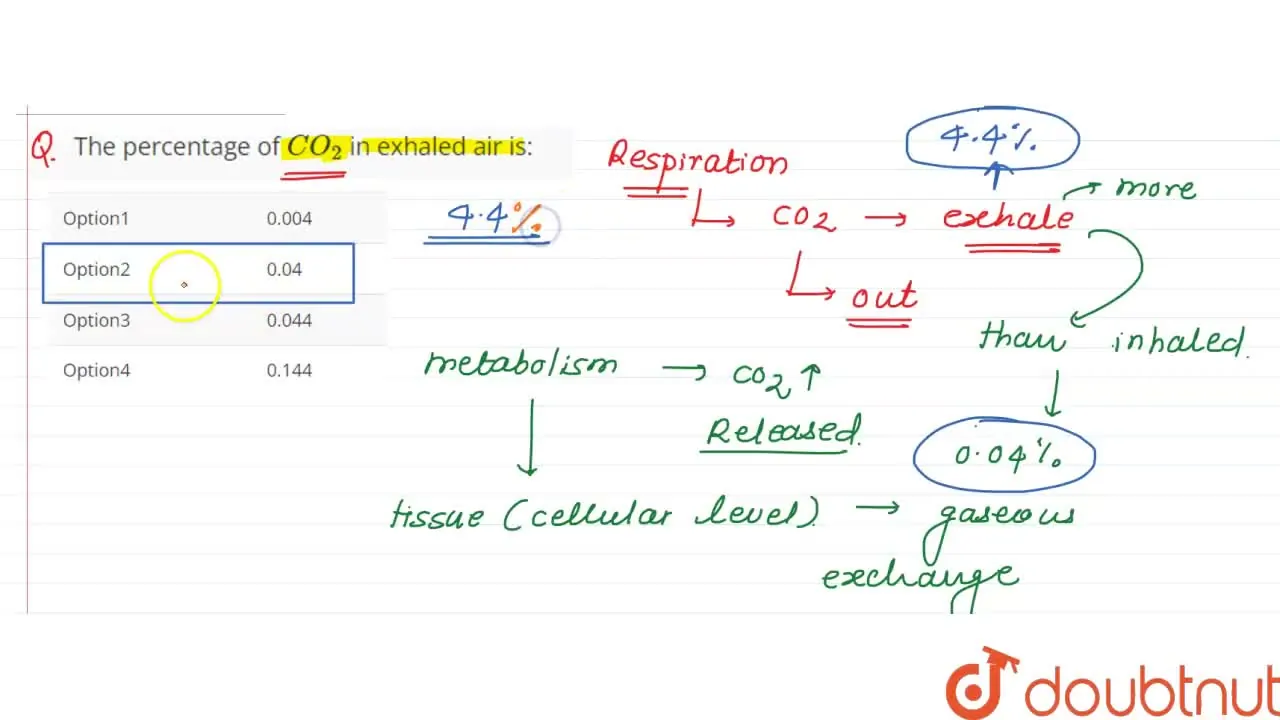 Q. The percentage of CO₂ in exhaled air is:
Option1 0.004
Option2 0.04
Option3 0.044
Option4 0.144
4.4%
Respiration
CO₂ → exhale → more
4.4%
out
than inhaled.
0.04%
metabolism → CO₂ ↑
Released.
tissue (cellular level) → gaseous
exchange
doubtnut